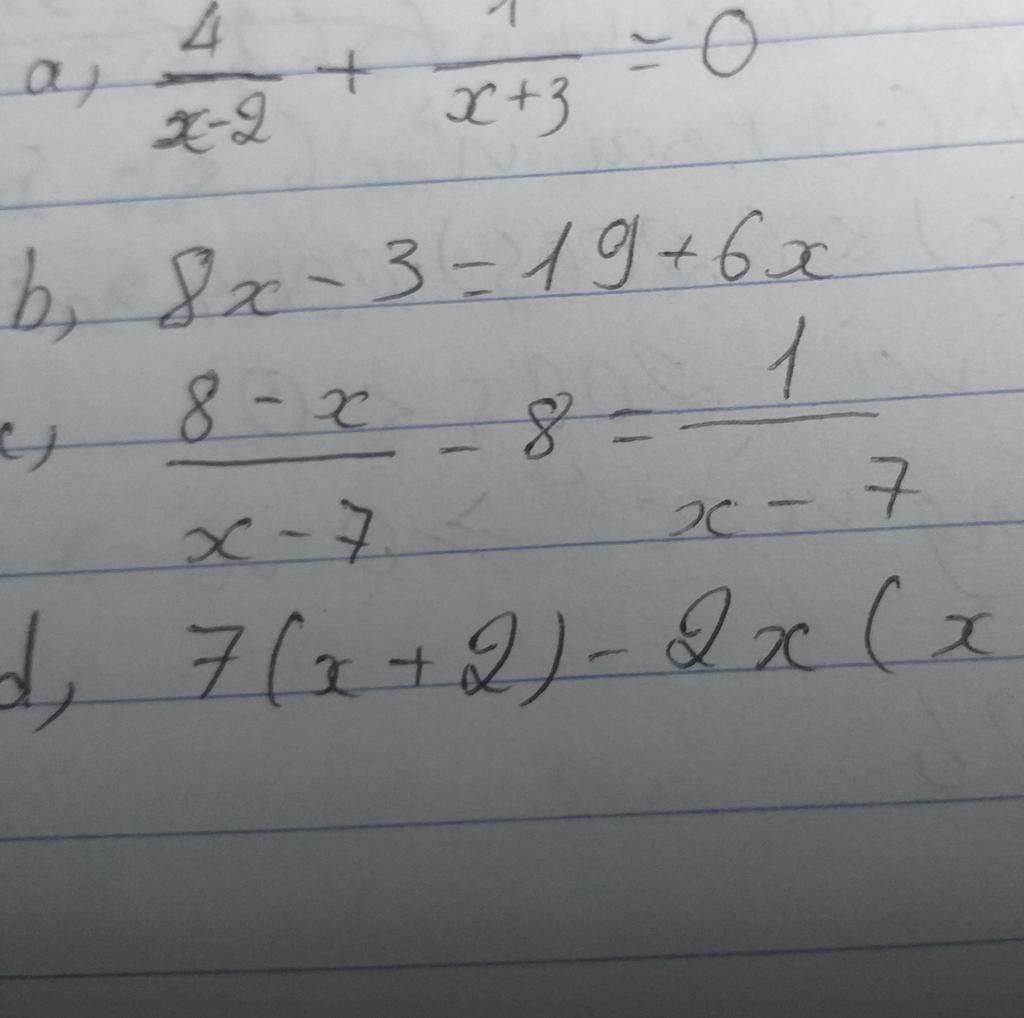 a, 4/(x-2) + 1/(x+3) = 0
b, 8x - 3 = 19 + 6x
c, (8 - x)/(x - 7) - 8 = 1/(x - 7)
d, 7(x + 2) - 2x (x